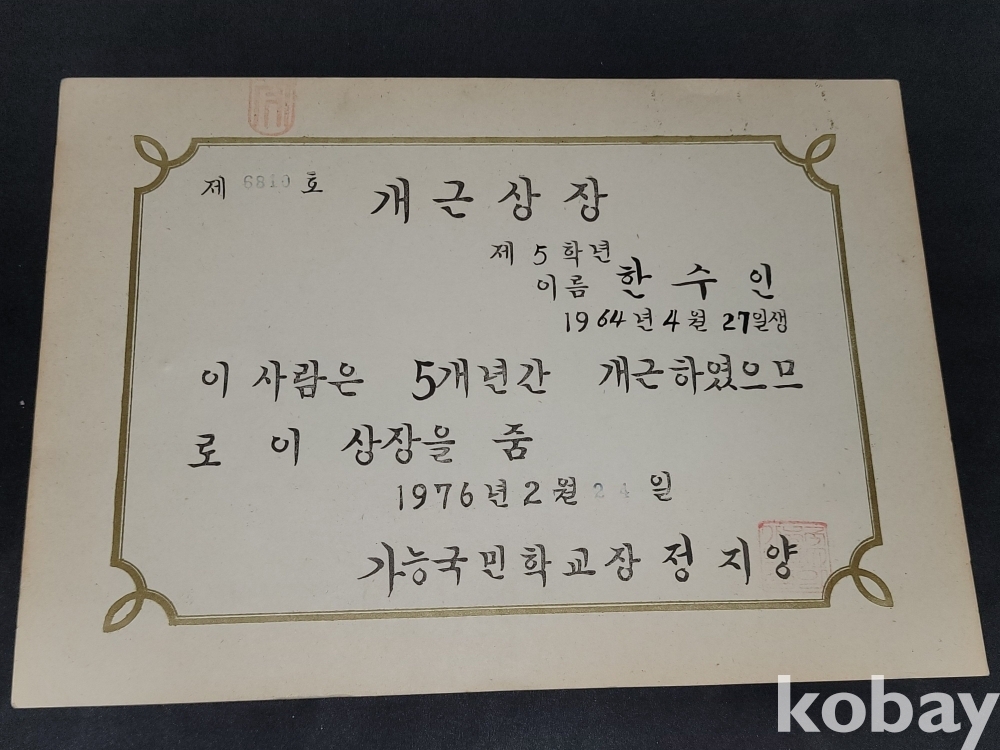 제 6810 호
개근상장
제 5 학년
이름 한 수 인
1964년 4월 27일생
이 사람은 5개년간 개근하였으므
로 이 상장을 줌
1976년 2월 24일
가능국민학교장 정 지 양
kobay